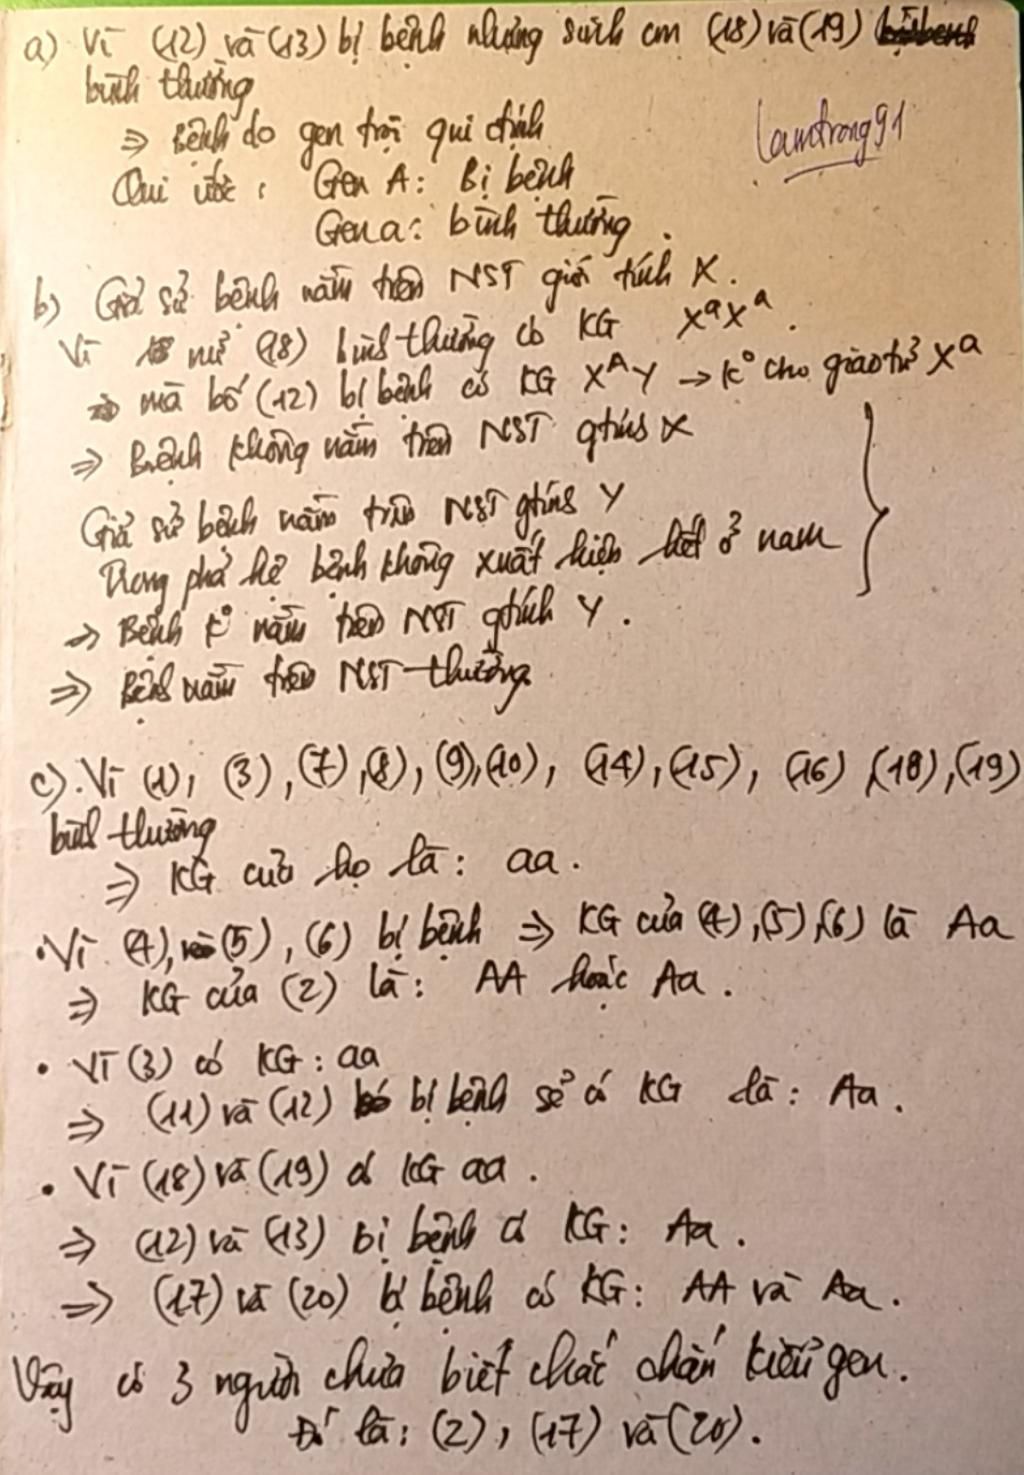 a) Vì (12) và (13) bị bệnh nhưng sinh con (18) và (19)
bình thường
⇒ Bệnh do gen trội qui định
lamtrong91
Qui ước : Gen A: Bị bệnh
Gen a: bình thường .
b) Giả sử bệnh nằm trên NST giới tính X.
Vì nữ (18) bình thường có KG XᵃXᵃ .
mà bố (12) bị bệnh có KG XᴬY → K° cho giao tử Xᵃ
⇒ Bệnh không nằm trên NST gtính X
Giả sử bệnh nằm trên NST gtính Y
Trong phả hệ bệnh không xuất hiện hết ở nam
⇒ Bệnh k° nằm trên NST gtính Y .
⇒ Bệnh nằm trên NST thường.
c). Vì (1), (3), (7), (8), (9), (10), (14), (15), (16), (18), (19)
bình thường
⇒ KG của họ là: aa .
• Vì (4), (5), (6) bị bệnh ⇒ KG của (4), (5), (6) là Aa
⇒ KG của (2) là: AA hoặc Aa .
• Vì (3) có KG: aa
⇒ (11) và (12) bị bệnh sẽ có KG là: Aa .
• Vì (18) và (19) có KG aa .
⇒ (12) và (13) bị bệnh có KG: Aa .
⇒ (17) và (20) bị bệnh có KG: AA và Aa .
Vậy có 3 người chưa biết chắc chắn kiểu gen.
Đó là: (2), (17) và (20).